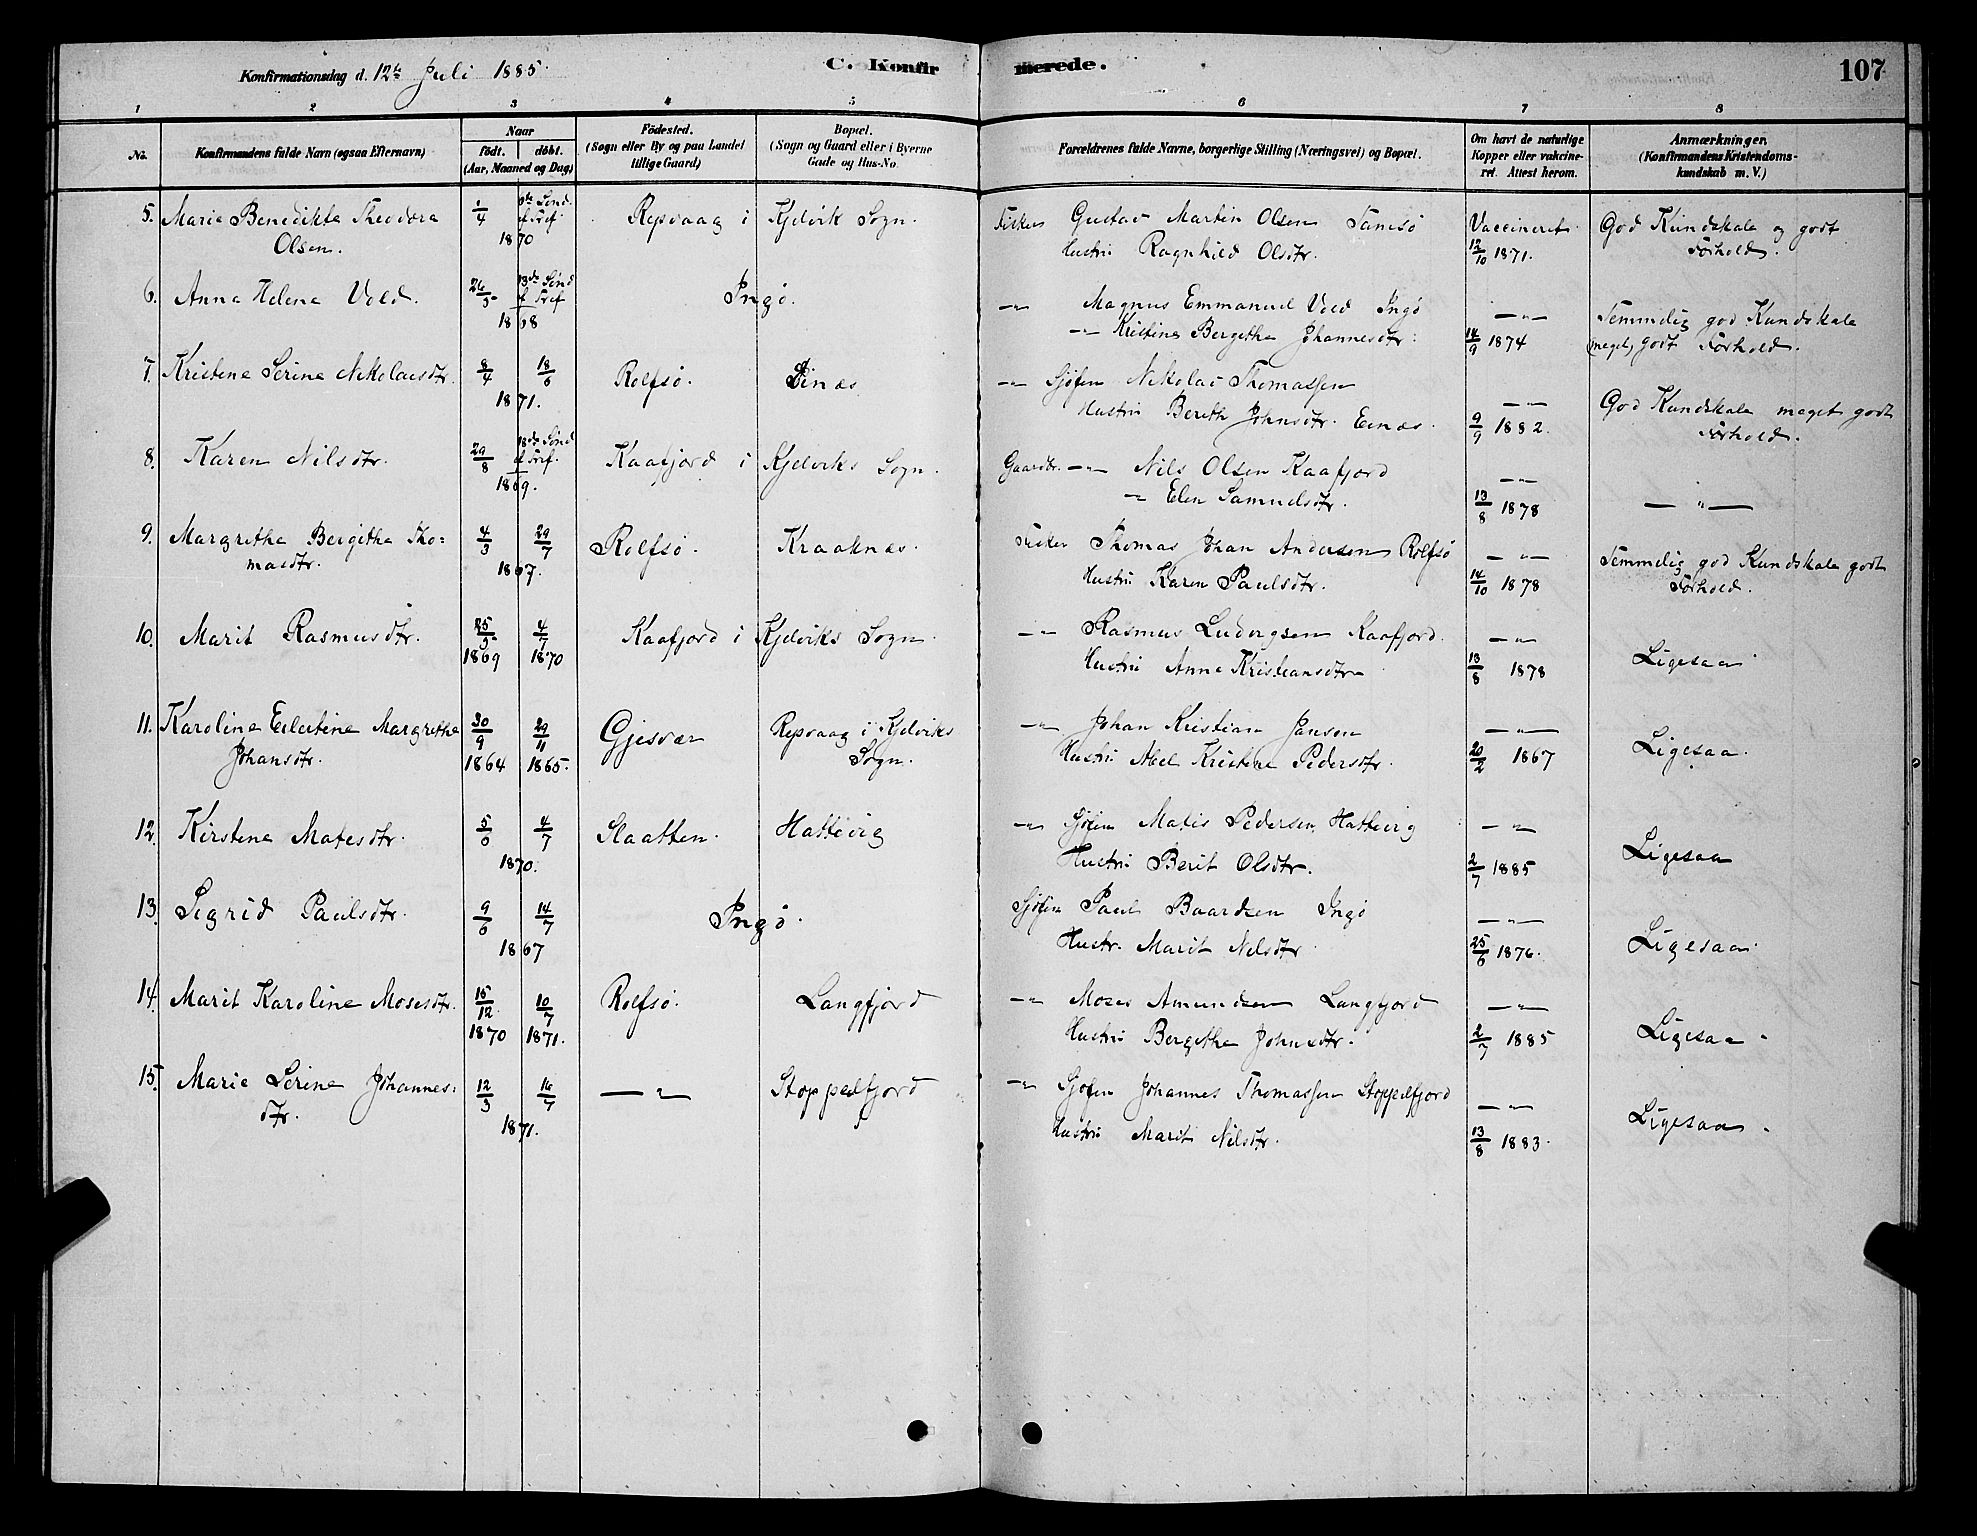 Konfirmationsdag d. 12te Juli 1885.
C. Konfirmerede.
107
1 2 3 4 5 6 7 8
No.
Konfirmandens fulde Navn (ogsaa Efternavn)
Naar
födt. döbt.
(Aar, Maaned og Dag)
Födested.
(Sogn eller By og paa Landet
tillige Gaard)
Bopæl.
(Sogn og Gaard eller i Byerne
Gade og Hus-No.
Forældrenes fulde Navne, borgerlige Stilling (Næringsvei) og Bopæl.
Om havt de naturlige
Kopper eller vakcine-
ret. Attest herom.
Anmærkninger.
(Konfirmandens Kristendoms-
kundskab m. V.)
5. Maria Benedikte Theodora
Olsen.
1/4 Sönd. ef Tref.
1870
Repvaag i Kjelvik Sogn.
Fisker Gustav Martin Olsen Tamsö
Hustru Ragnhild Olsdtr.
Vaccineret
12/10 1871.
God Kundskab og godt
Forhold.
6. Anna Helena Vold.
26/5 13de Sönd ef Tref
1868
Ingö.
—"— Magnus Emmanuel Vold Ingö
—"— Kristine Bergitha Johannesdtr:
—"—
14/9 1874
Temmelig god Kundskab
meget godt Forhold.
7. Kristene Serine Nikolaisdtr.
8/4 18/6
1871.
Rolfsö. Einæs
—"— Sjöfin Nikolai Thomassen
Hustru Berith Johnsdtr. Einæs.
—"—
9/9 1882.
God Kundskab meget godt
Forhold.
8. Karen Nilsdtr.
29/8 18de Sönd ef Tref.
1869.
Kaafjord i Kjelviks Sogn.
Gaardbr. —"— Nils Olsen Kaafjord
—"— Elen Samuelsdtr.
—"—
13/8 1878
—"—
9. Margrethe Bergitha Tho=
masdtr.
4/3 29/7
1867.
Rolfsö. Kraaknæs.
Fisker Thomas Johan Andersen Rolfsö
Hustru Karen Paulsdtr.
—"—
14/10 1878
Temmelig god Kundskab godt
Forhold.
10. Marit Rasmusdtr.
25/5 4/7
1869 1870
Kaafjord i Kjelviks Sogn.
—"— Rasmus Ludvigsen Kaafjord.
Hustru Anne Kristiansdtr
—"—
13/8 1878
Ligesaa
11. Karoline Eilertine Margrethe
Johansdtr.
30/9 29/11
1864 1865.
Gjesvær
Repvaag i Kjelviks
Sogn.
—"— Johan Kristian Jansen
Hustru Abel Kristine Pedersdtr.
—"—
20/2 1867
Ligesaa.
12. Kirstene Matisdtr.
5/6 4/7
1870.
Slaatten. Hattvig
—"— Sjöfin Matis Pedersen, Hattvig
Hustru Berit Olsdtr.
—"—
2/7 1885
Ligesaa
13. Sigrid Paulsdtr.
9/6 14/7
1867
Ingö.
Sjöfin Paul Baardsen Ingö
Hustr. Marit Nilsdtr
—"—
25/6 1876.
Ligesaa.
14. Marit Karoline Mosesdtr.
15/12 10/7
1870 1871.
Rolfsö. Langfjord
—"— Moses Amundsen Langfjord
Hustru Bergitha Johnsdtr.
—"—
2/7 1885
Ligesaa.
15. Marie Serine Johannes=
dtr.
12/3 16/7
1871.
—"— Stoppelfjord
—"— Sjöfin Johannes Thomassen Stoppelfjord
Hustru Marit Nilsdtr.
—"—
13/8 1883.
Ligesaa.